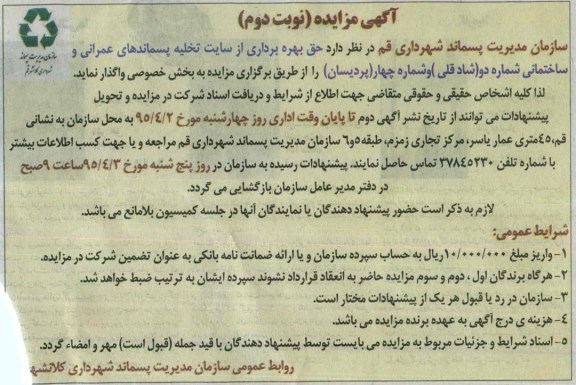 آگهی مزایده (نوبت دوم)
سازمان مدیریت پسماند شهرداری قم در نظر دارد حق بهره برداری از سایت تخلیه پسماندهای عمرانی و
ساختمانی شماره دو(شاد قلی )وشماره چهار(پردیسان) را از طریق برگزاری مزایده به بخش خصوصی واگذار نماید.
لذا کلیه اشخاص حقیقی و حقوقی متقاضی جهت اطلاع از شرایط و دریافت اسناد شرکت در مزایده و تحویل
پیشنهادات می توانند از تاریخ نشر آگهی دوم تا پایان وقت اداری روز چهارشنبه مورخ ۹۵/۴/۲ به محل سازمان به نشانی
قم،۴۵متری عمار یاسر، مرکز تجاری زمزم، طبقه۵و۶ سازمان مدیریت پسماند شهرداری قم مراجعه و یا جهت کسب اطلاعات بیشتر
با شماره تلفن ۳۷۸۴۵۲۳۰ تماس حاصل نمایند. پیشنهادات رسیده به سازمان در روز پنج شنبه مورخ ۹۵/۴/۳ساعت ۹صبح
در دفتر مدیر عامل سازمان بازگشایی می گردد.
لازم به ذکر است حضور پیشنهاد دهندگان یا نمایندگان آنها در جلسه کمیسیون بلامانع می باشد.
شرایط عمومی:
۱- واریز مبلغ ۱۰/۰۰۰/۰۰۰ریال به حساب سپرده سازمان و یا ارائه ضمانت نامه بانکی به عنوان تضمین شرکت در مزایده.
۲- هرگاه برندگان اول ، دوم و سوم مزایده حاضر به انعقاد قرارداد نشوند سپرده ایشان به ترتیب ضبط خواهد شد.
۳- سازمان در رد یا قبول هر یک از پیشنهادات مختار است.
۴- هزینه ی درج آگهی به عهده برنده مزایده می باشد.
۵- اسناد شرایط و جزئیات مربوط به مزایده می بایست توسط پیشنهاد دهندگان با قید جمله (قبول است) مهر و امضاء گردد.
روابط عمومی سازمان مدیریت پسماند شهرداری کلانشهر